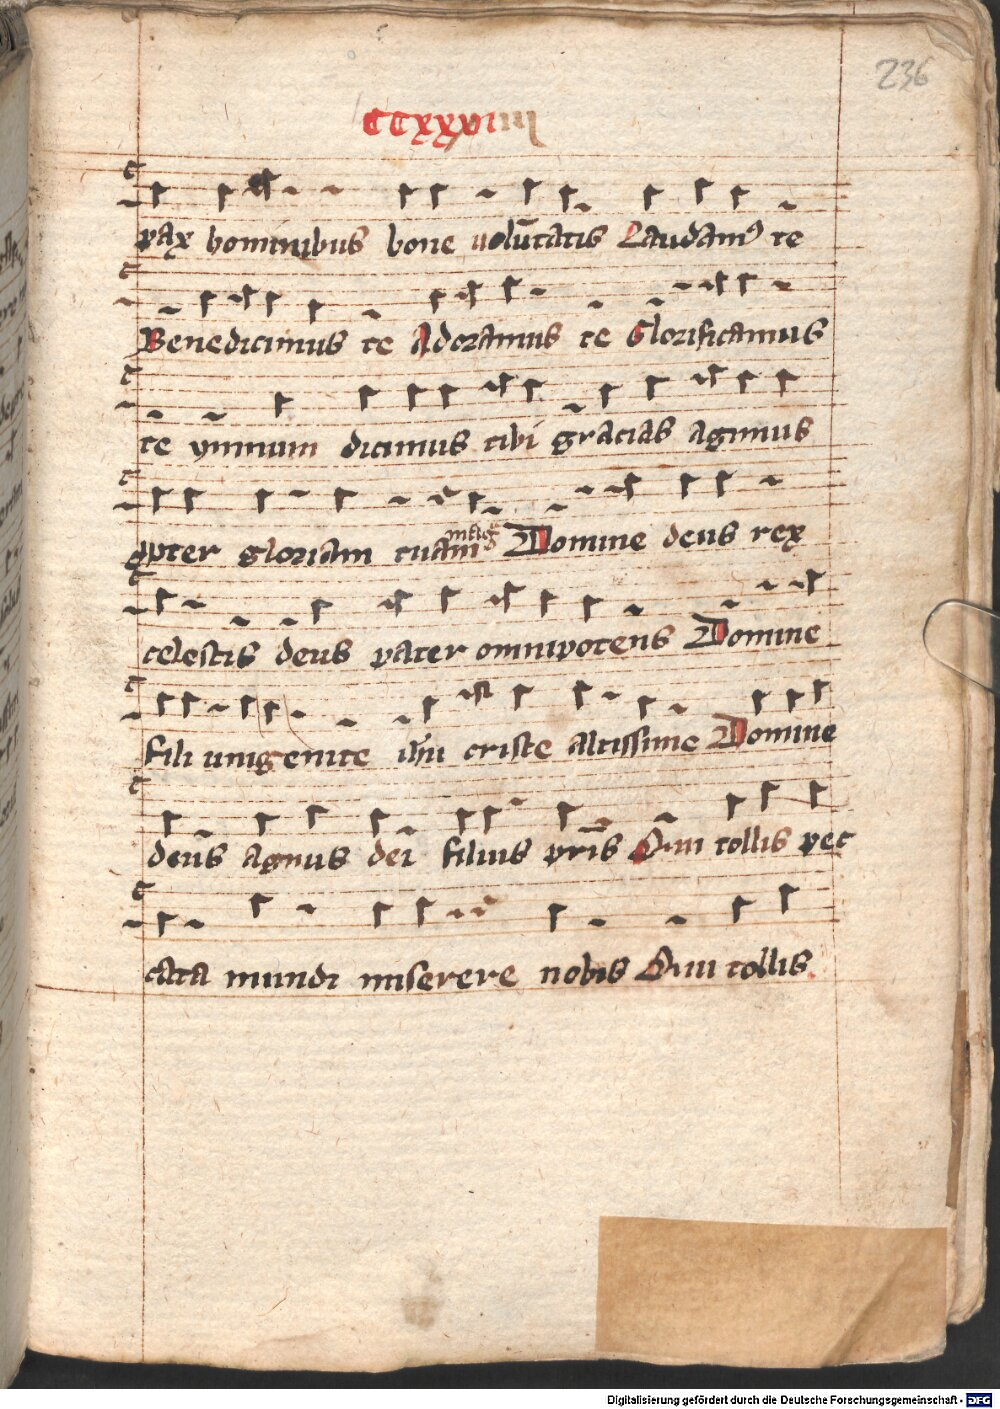 236
ccxxxviiii
pax hominibus bone volūtatis Laudamꝰ te
Benedicimus te Adoramus te Glorificamus
te ymnum dicimus tibi gracias agimus
ꝓpter gloriam tuam Domine deus rex
celestis deus pater omnipotens Domine
fili unigenite ihū criste altissime Domine
deus agnus dei filius pr̄is Qui tollis pec
cata mundi miserere nobis Qui tollis
Digitalisierung gefördert durch die Deutsche Forschungsgemeinschaft - DFG